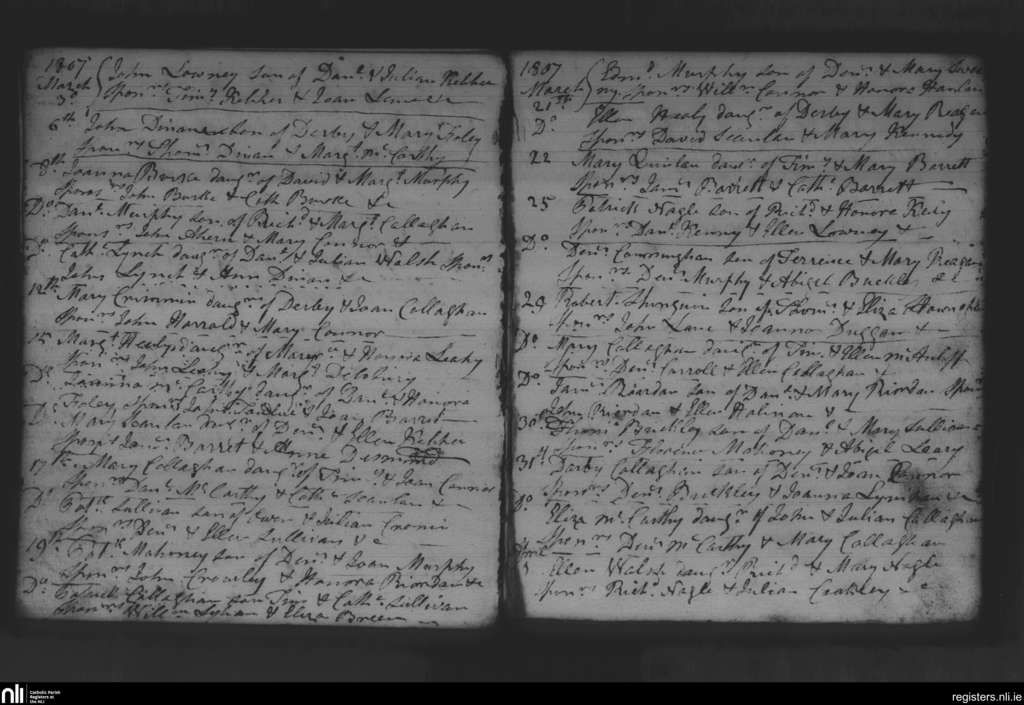 1807
March { John Lowney son of Danl. & Julian Keliher
3d. Sponrs. Timy. Keliher & Joan
6th John Dinan son of Derby & Mary Foley
Sponrs. Thoms. Dinan & Margt. McCarthy
8th Joanna Burke daugr. of David & Margt. Murphy
Sponrs. John Burke & Cath Burke &c
Do. Danl. Murphy son of Richd. & Margt. Callaghan
Sponrs. John Ahern & Mary Connor &
Do. Cath. Lynch daugr. of Danl. & Julian Walsh Sponrs.
John Lynch & Ann Dinan &c
12th Mary Crimmin daugr. of Derby & Joan Callaghan
Sponrs. John Harrold & Mary Connor
15 Margt. Healy daugr. of & Leahy
Sponrs. John Leahy & Margt.
Do. Joanna McCarthy daugr. of Danl. & Honora
Foley, sponrs. John & Joan Barrot
Do. Mary Scanlan daugr. of Denis. & Ellen Keliher
Sponrs. James. Barret & Anne Desmond
17th Mary Callaghan daugr. of Tim. & Joan Connor
Sponrs. Danl. McCarthy & Cathe. Scanlan &
Do. Patk. Sullivan son of Owen & Julian Cronin
Sponrs. Denis. & Ellen Sullivan &c
19th Patk. Mahoney son of Denis. & Joan Murphy
Sponrs. John Crowley & Honora Riordan &c
Do. Patrick Callaghan son Tim & Cathe. Sullivan
Sponrs. Willm. & Eliza Breen
1807
March { Edmd. Murphy son of Denis. & Mary
ny, Sponrs. Willm. Connor & Honora Hanlan
21st
Do. Ellen Healy daugr. of Derby & Mary Reagan
Sponrs. David Scanlan & Mary Kennedy
22 Mary Quinlan daur. of Timy. & Mary Barrett
Sponrs. James. Barrett & Cath. Barrett
25 Patrick Nagle son of Richd. & Honora
Sponrs. Danl. Kenny & Ellen Lowney &
Do. Denis. Cunninghan son of Terrence & Mary Reagan
Sponrs. Denis. Murphy & Abigel Buckley &c
29 Robert son of Thoms. & Eliza
Sponrs. John Lane & Joanna Duggan &
Do. Mary Callaghan daugr. of Tim. & Ellen McAuliff
Sponrs. Denis. Carroll & Ellen Callaghan &
Do. James. Riordan son of Danl. & Mary Riordan Sponrs.
John Riordan & Ellen &
30th Thoms. Buckley son of Danl. & Mary Sullivan
Sponrs. Florence Mahoney & Abigel Leary
31st Darby Callaghan son of Denis. & Joan Connor
Sponrs. Denis. Buckley & Joanna
Do. Eliza McCarthy daugr. of John & Julian Callaghan
Sponrs. Denis McCarthy & Mary Callaghan
April
Ellen Walsh daugr. Richd. & Mary Nagle
Sponrs. Richd. Nagle & Julian Coakley &c
nli
Catholic Parish
Registers at
the NLI
registers.nli.ie